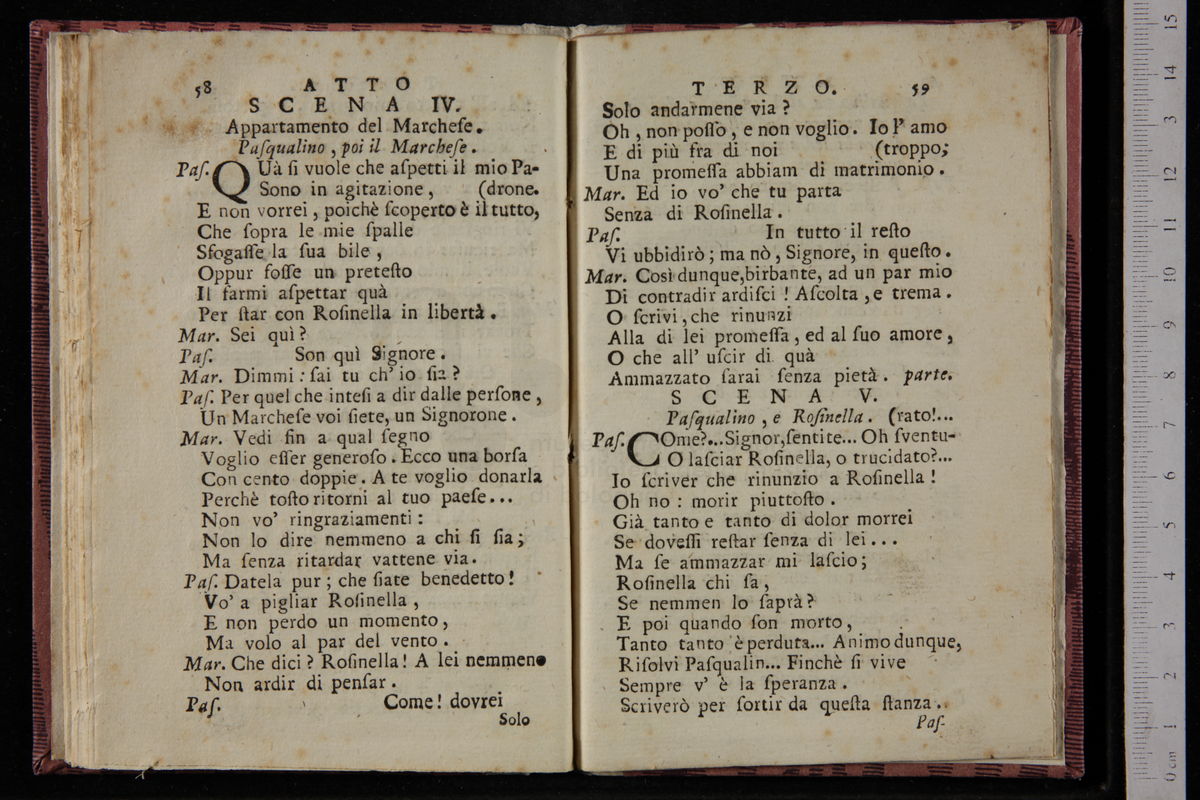 58 ATTO
SCENA IV.
Appartamento del Marcheſe.
Paſqualino, poi il Marcheſe.
Paſ. QUà ſi vuole che aſpetti il mio Pa-
Sono in agitazione, (drone.
E non vorrei, poichè ſcoperto è il tutto,
Che ſopra le mie ſpalle
Sfogaſſe la ſua bile,
Oppur foſſe un preteſto
Il farmi aſpettar quà
Per ſtar con Roſinella in libertà.
Mar. Sei quì?
Paſ. Son quì Signore.
Mar. Dimmi: ſai tu ch' io ſia?
Paſ. Per quel che inteſi a dir dalle perſone,
Un Marcheſe voi ſiete, un Signorone.
Mar. Vedi ſin a qual ſegno
Voglio eſſer generoſo. Ecco una borſa
Con cento doppie. A te voglio donarla
Perchè toſto ritorni al tuo paeſe...
Non vo' ringraziamenti:
Non lo dire nemmeno a chi ſi ſia;
Ma ſenza ritardar vattene via.
Paſ. Datela pur; che ſiate benedetto!
Vo' a pigliar Roſinella,
E non perdo un momento,
Ma volo al par del vento.
Mar. Che dici? Roſinella! A lei nemmeno
Non ardir di penſar.
Paſ. Come! dovrei
Solo
TERZO. 59
Solo andarmene via?
Oh, non poſſo, e non voglio. Io l' amo
E di più fra di noi (troppo;
Una promeſſa abbiam di matrimonio.
Mar. Ed io vo' che tu parta
Senza di Roſinella.
Paſ. In tutto il reſto
Vi ubbidirò; ma nò, Signore, in queſto.
Mar. Così dunque, birbante, ad un par mio
Di contradir ardiſci! Aſcolta, e trema.
O ſcrivi, che rinunzi
Alla di lei promeſſa, ed al ſuo amore,
O che all' uſcir di quà
Ammazzato ſarai ſenza pietà. parte.
SCENA V.
Paſqualino, e Roſinella. (rato!...
Paſ. COme?...Signor, ſentite... Oh ſventu-
O laſciar Roſinella, o trucidato?...
Io ſcriver che rinunzio a Roſinella!
Oh no: morir piuttoſto.
Già tanto e tanto di dolor morrei
Se doveſſi reſtar ſenza di lei...
Ma ſe ammazzar mi laſcio;
Roſinella chi ſa,
Se nemmen lo ſaprà?
E poi quando ſon morto,
Tanto tanto è perduta... Animo dunque,
Riſolvi Paſqualin... Finchè ſi vive
Sempre v' è la ſperanza.
Scriverò per ſortir da queſta ſtanza.
Paſ-
0 cm 1 2 3 4 5 6 7 8 9 10 11 12 13 14 15